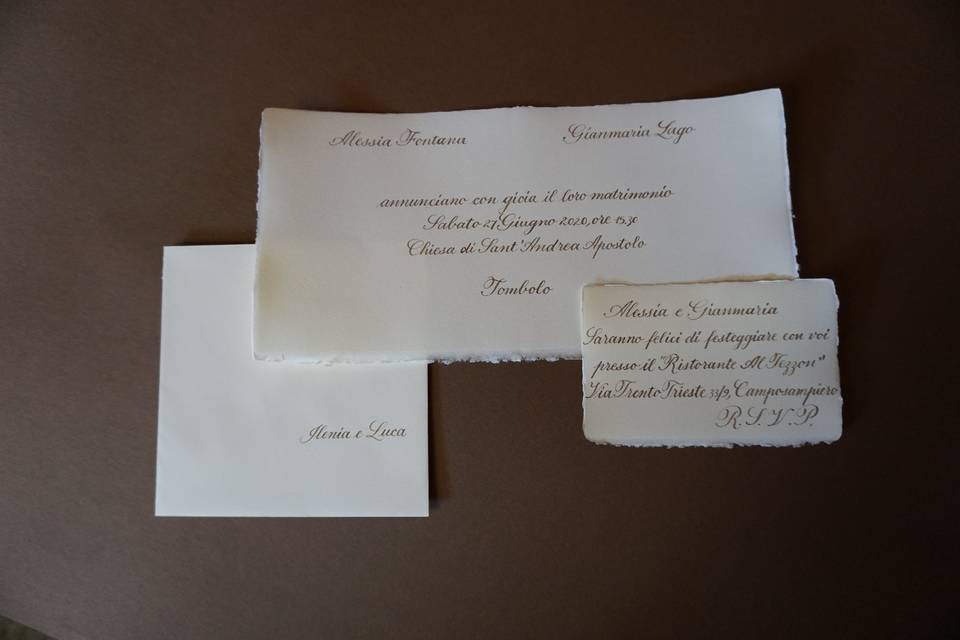 Alessia Fontana Gianmaria Lago
annunciano con gioia il loro matrimonio
Sabato 27 Giugno 2020, ore 15.30
Chiesa di Sant'Andrea Apostolo
Tombolo
Alessia e Gianmaria
Saranno felici di festeggiare con voi
presso il "Ristorante Al Tezzon"
Via Trento Trieste 33/9, Camposampiero
R.S.V.P.
Ilenia e Luca